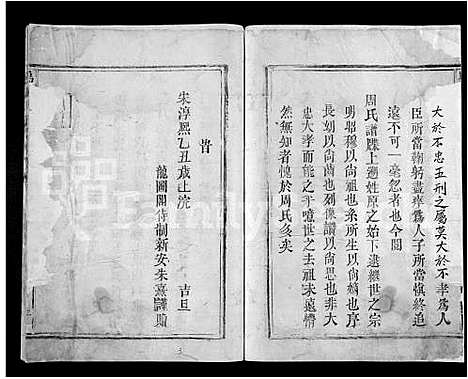 大於不忠五刑之屬莫大於不孝爲人
臣所當鞠躬盡瘁爲人子所當愼終追
遠不可一毫忽者也今閱
周氏譜牒上遡姓原之始下逮繼世之宗
明昭穆以尙祖也条所生以尙嫡也序
長幼以尙齒也列像讚以尙思也非大
忠大孝而能之乎噫世之去祖未遠情
然無知者愧於周氏多矣
旹
朱淳熙乙丑歲上浣 吉旦
龍圖閣待制新安朱熹謹勛